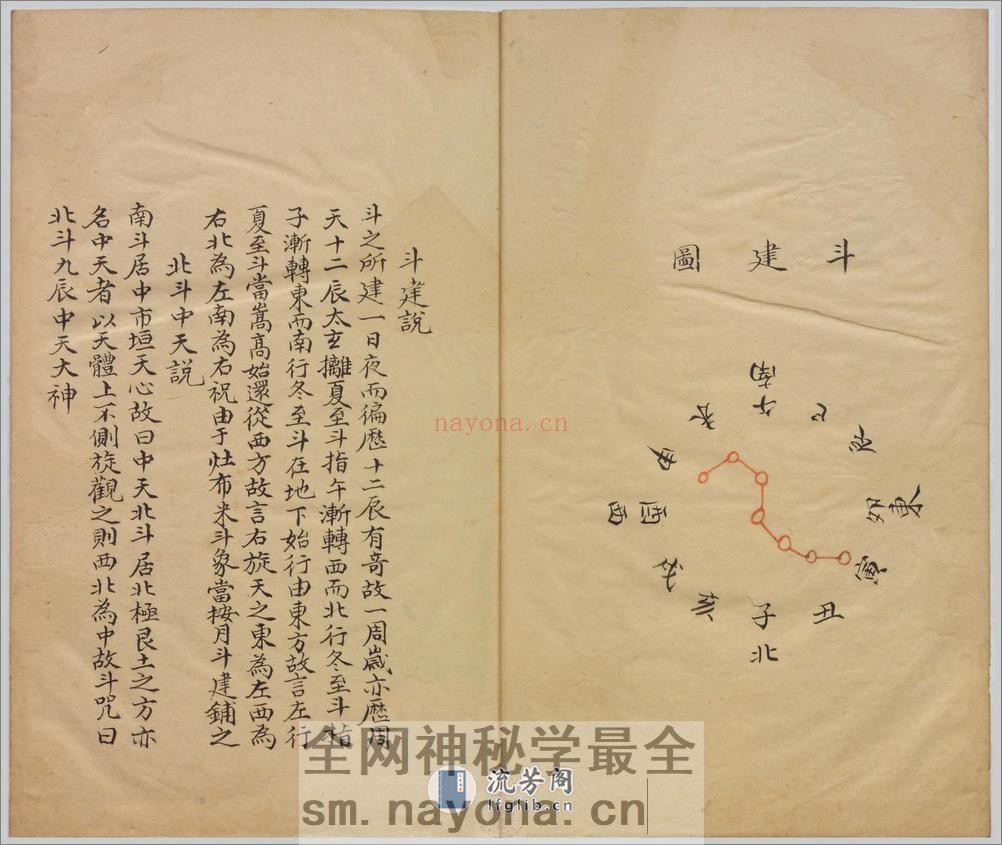 斗建圖
午南
巳
辰
卯東
寅
丑
子
北
亥
戌
酉西
申
未
斗建說
斗之所建一日夜而徧歷十二辰有奇故一周歲亦歷周
天十二辰太玄攡夏至斗指午漸轉西而北行冬至斗指
子漸轉東而南行冬至斗在地下始行由東方故言左行
夏至斗當嵩高始還從西方故言右旋天之東為左西為
右北為左南為右祝由于灶布米斗象當按月斗建鋪之
北斗中天説
南斗居中市垣天心故曰中天北斗居北極艮土之方亦
名中天者以天體上不側旋觀之則西北為中故斗咒曰
北斗九辰中天大神
nayona.cn
全网神秘学最全
流芳阁
lfglib.cn
sm.nayona.cn